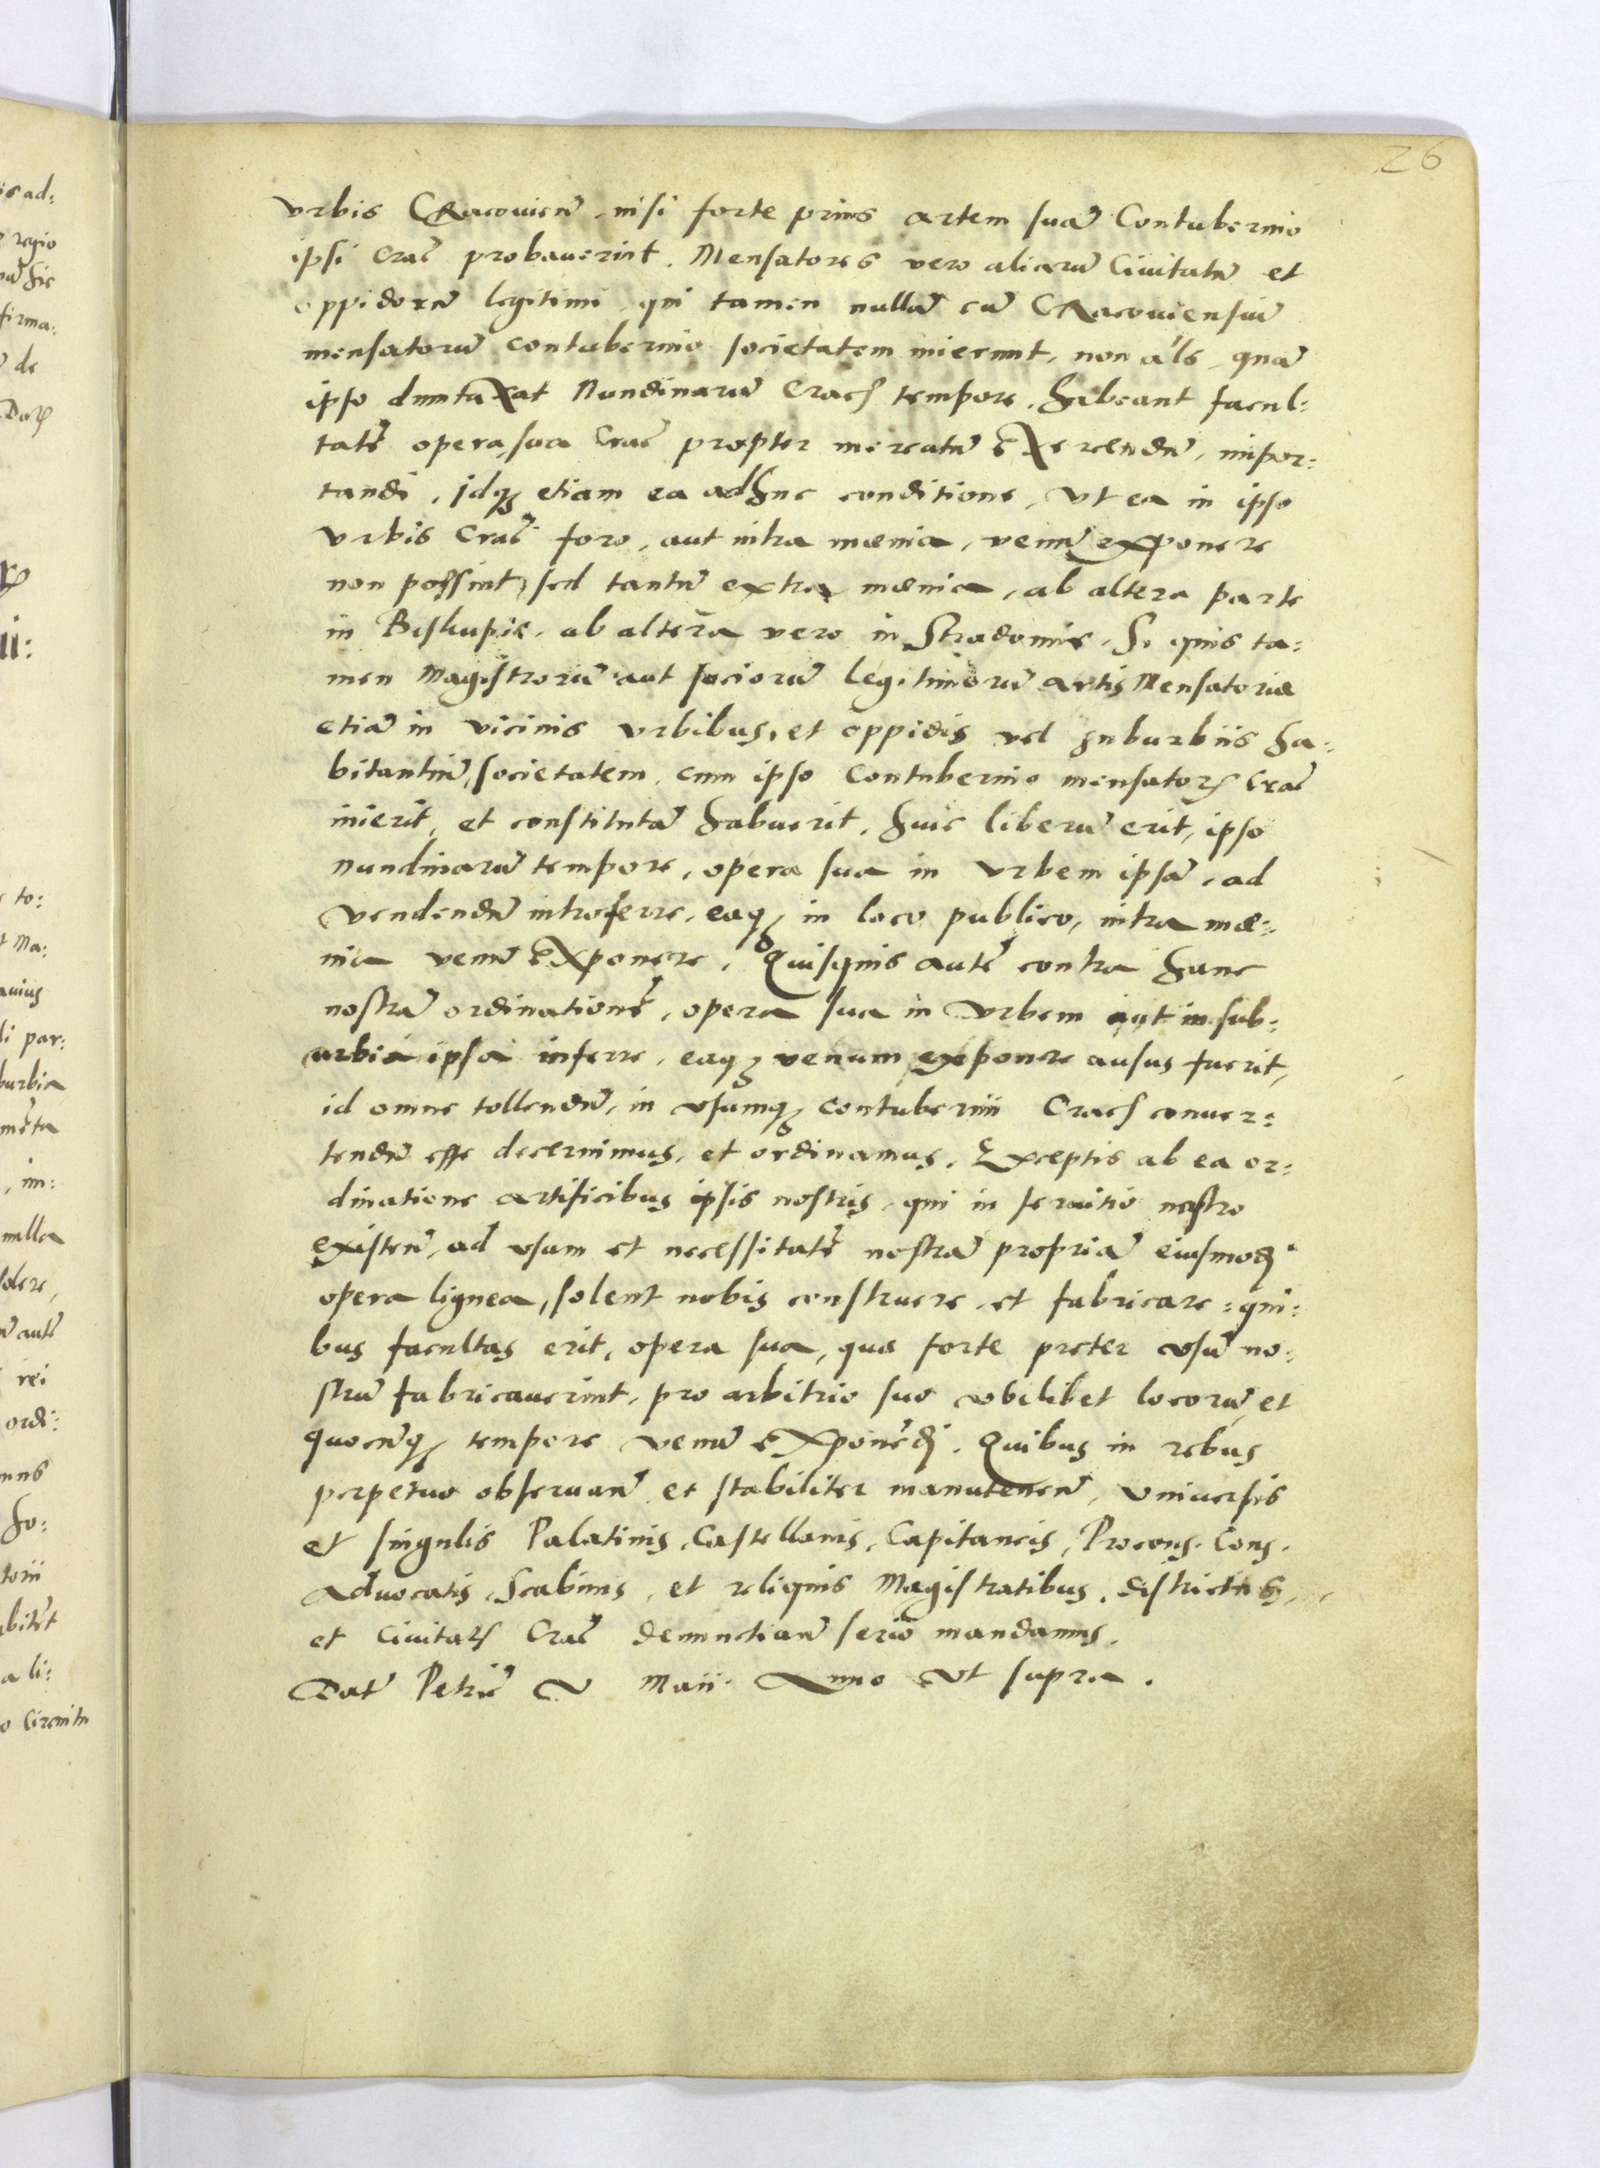 26
vrbis CRacovień nisi forte prius artem suā Contubernio
ipsi Crać probauerint. Mensatores vero aliarū Ciuitatū et
oppidorū legitimi, qui tamen nullā cū CRacouiensiū
mensatorū contubernio societatem inierunt, non als, quā
ipso duntaxat Nundinarū Craē tempore, habeant facul:
tatē opera sua Crać propter mercatū exercendū, impor:
tandi, idq3 etiam ea adhuc conditione, vt ea in ipso
vrbis Crać foro, aut intra mœnia, venū exponere
non possint, sed tantū extra mœnia, ab altera parte
in Biskupie, ab altera vero in Stradomie. Si quis ta:
men Magistrorū aut sociorū legitimorū artis Mensatoriæ
etiā in vicinis vrbibus, et oppidis vel suburbiis ha:
bitantiū, societatem, cum ipso Contubernio mensatorꝝ Crać
inierit, et constitutā habuerit, huic liberū erit, ipso
Nundinarū tempore, opera sua in vrbem ipsā, ad
vendendū introferre, eaq3 in loco publico, intra mœ:
nia venū exponere. Quisquis autē contra hanc
nostrā ordinationē, opera sua in vrbem aut in sub:
urbia ipsa inferre, eaq3 venum exponere ausus fuerit,
id omne tollendū, in vsumq3 contubernii Craē conuer:
tendū esse decernimus, et ordinamus. Exceptis ab ea or:
dinatione artificibus ipsis nostris, qui in seruitio nostro
existeń, ad vsum et necessitatē nostrā propriā eiusmodi
opera lignea, solent nobis construere et fabricare: qui:
bus facultas erit, opera sua, quæ forte preter vsū no:
strū fabricauerint, pro arbitrio suo vbilibet locorū, et
quocūq3 tempore venū exponēdi. Quibus in rebus
perpetuo obseruań et stabiliter manuteneń, vniuersis
et singulis Palatinis, Castellanis, Capitaneis, Procons. Cons.
Aduocatis, Scabinis, et reliquis Magistratibus, districtus
et Ciuitatꝭ Crać denunctiań serio mandamus.
Dat Petric V Maii Anno Vt supra.